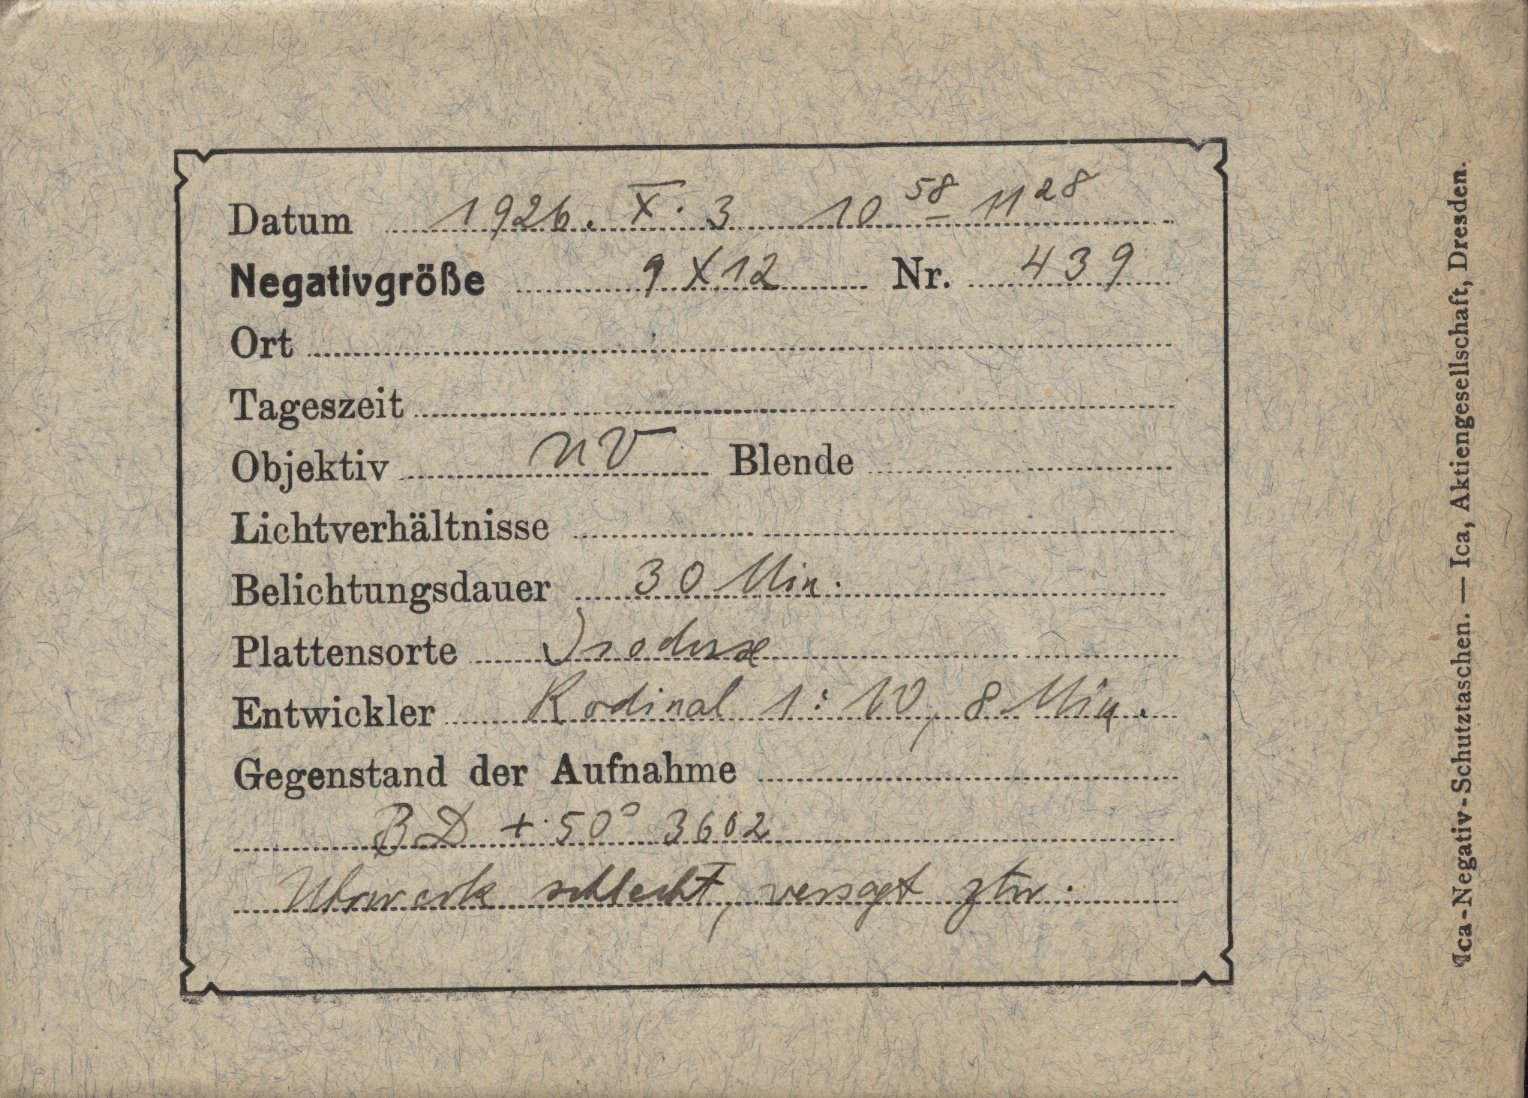 Datum 1926. X. 3 10 58 – 11 28
Negativgröße 9 X 12 Nr. 439
Ort
Tageszeit
Objektiv NV Blende
Lichtverhältnisse
Belichtungsdauer 30 Min.
Plattensorte Isodux
Entwickler Rodinal 1:10, 8 Min.
Gegenstand der Aufnahme
BD + 50° 3602
Uhrwerk schlecht, versagt ztw.
Ica-Negativ-Schutztaschen. — Ica, Aktiengesellschaft, Dresden.